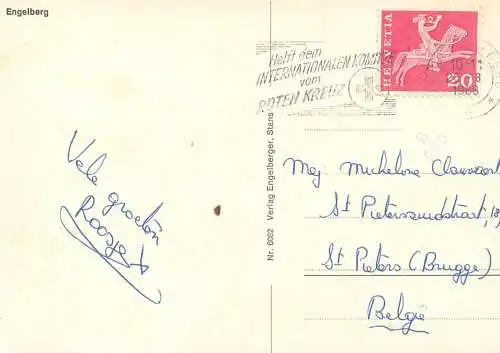 Engelberg
Helft dem
INTERNATIONALEN KOMITEE
vom
ROTEN KREUZ
HELVETIA
20
10-11
1966
Vele
groeten
Nr. 6062 Verlag Engelberger, Stans
Mej Micheline
St Pietersmolenstraat,
St Pieters (Brugge)
België